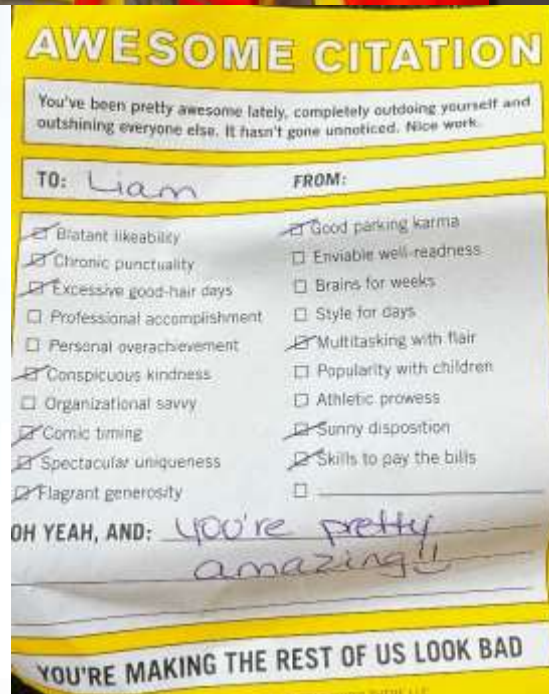 AWESOME CITATION
You've been pretty awesome lately, completely outdoing yourself and
outshining everyone else. It hasn't gone unnoticed. Nice work.
TO: Liam FROM:
Blatant likeability
Chronic punctuality
Excessive good-hair days
Professional accomplishment
Personal overachievement
Conspicuous kindness
Organizational savvy
Comic timing
Spectacular uniqueness
Flagrant generosity
Good parking karma
Enviable well-readness
Brains for weeks
Style for days
Multitasking with flair
Popularity with children
Athletic prowess
Sunny disposition
Skills to pay the bills
OH YEAH, AND: you're pretty
amazing!!
YOU'RE MAKING THE REST OF US LOOK BAD